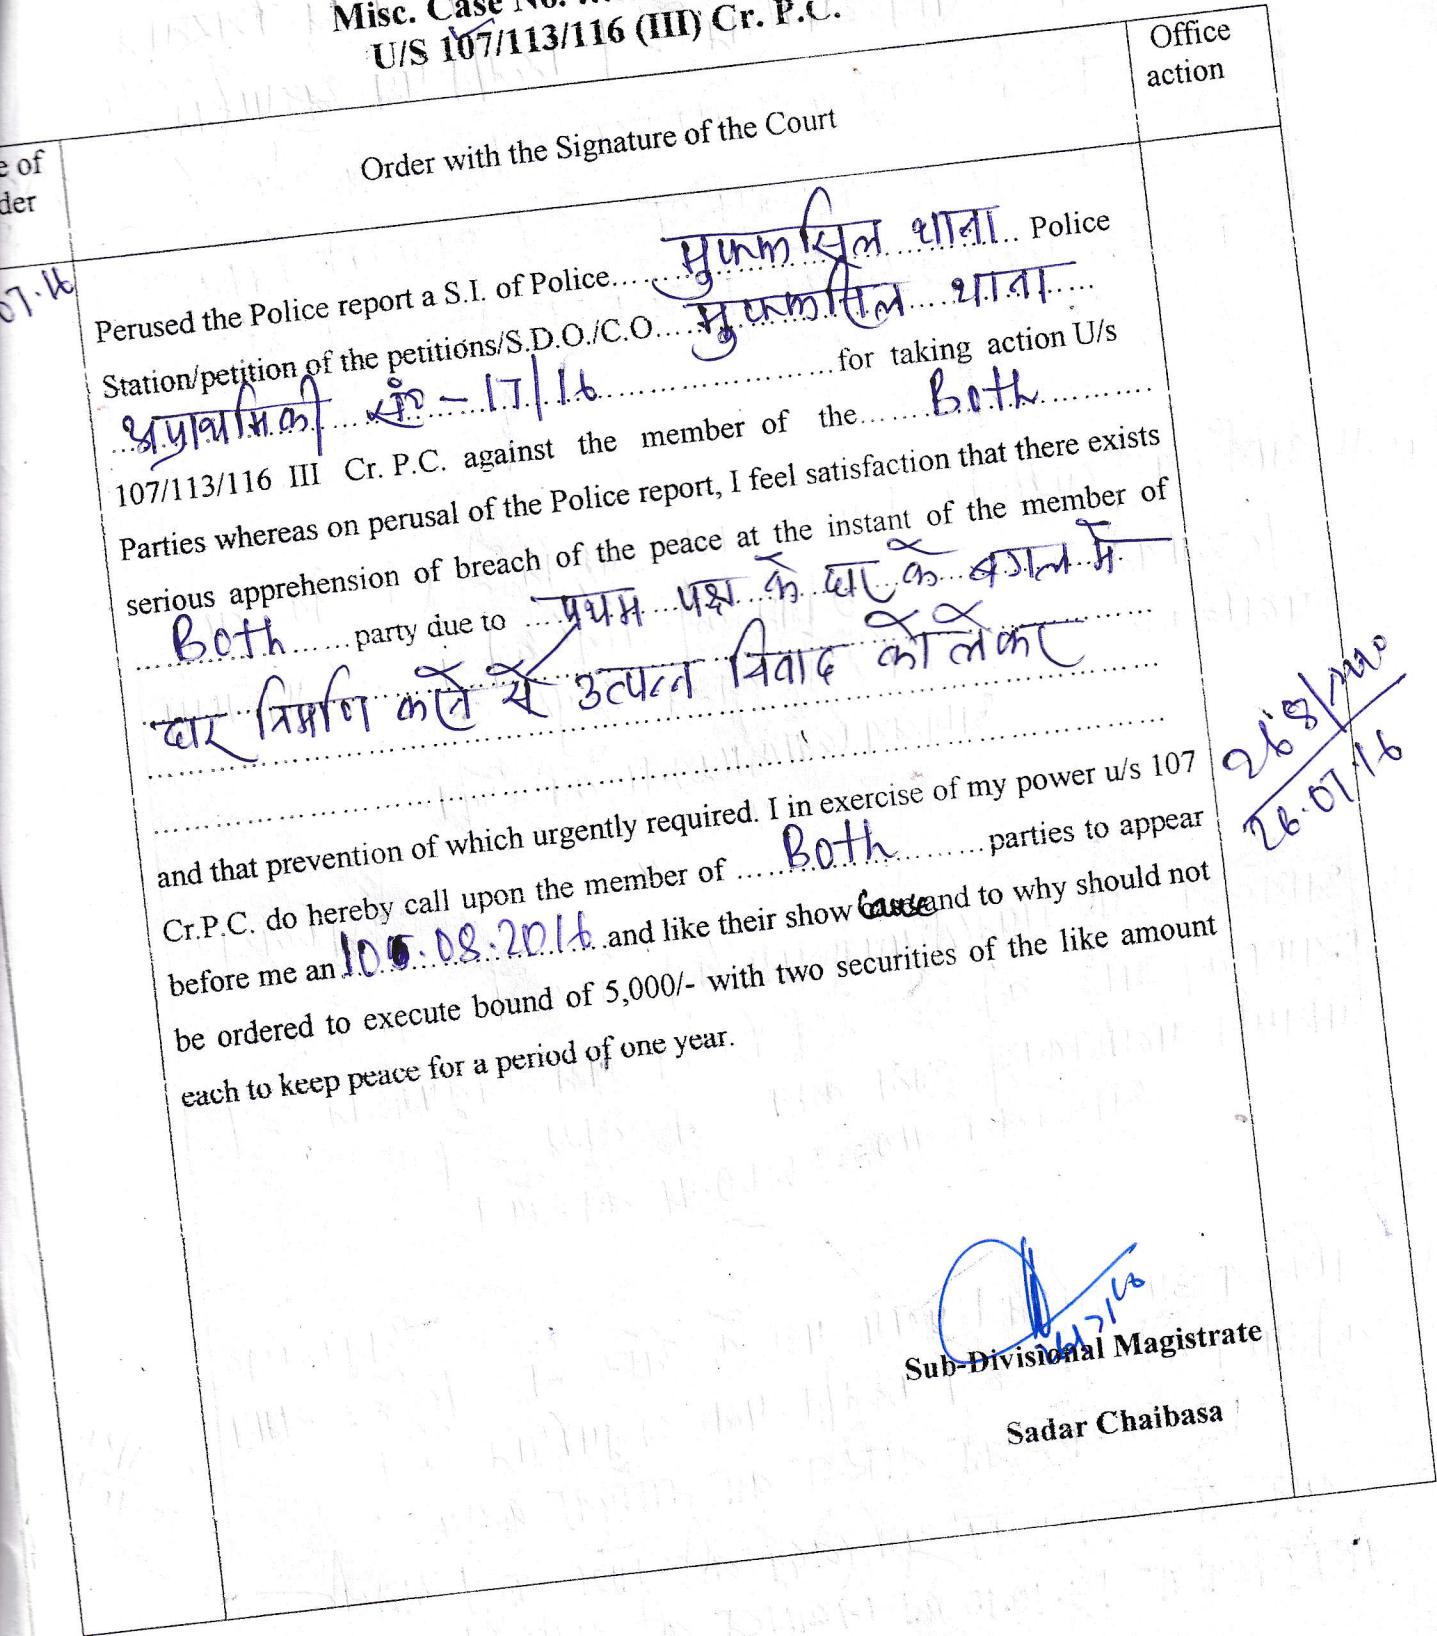 Misc. Case No.
U/S 107/113/116 (III) Cr. P.C.
e of
der
Order with the Signature of the Court
Office
action
07.16
Perused the Police report a S.I. of Police.....मुफ्फसिल थाना.. Police
Station/petition of the petitions/S.D.O./C.O.....मुफ्फसिल थाना.....
...अप्राथमिकी सं० - 17/16....................for taking action U/s
107/113/116 III Cr. P.C. against the member of the......Both............
Parties whereas on perusal of the Police report, I feel satisfaction that there exists
serious apprehension of breach of the peace at the instant of the member of
....Both......party due to ....प्रथम पक्ष के घर के बगल में
घर निर्माण करने से उत्पन्न विवाद को लेकर
and that prevention of which urgently required. I in exercise of my power u/s 107
Cr.P.C. do hereby call upon the member of .....Both..........parties to appear
before me an 10.08.2016..and like their show cause and to why should not
be ordered to execute bound of 5,000/- with two securities of the like amount
each to keep peace for a period of one year.
268/
26.07.16
26/7/16
Sub-Divisional Magistrate
Sadar Chaibasa